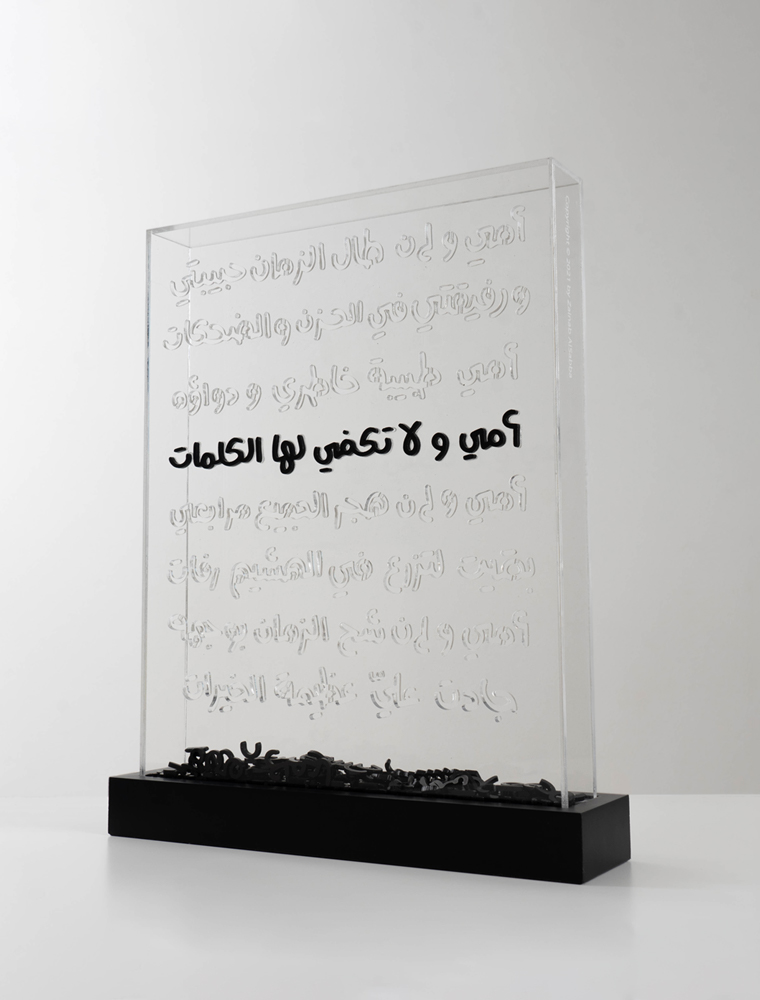 أمي و إن طال الزمان حبيبتي
ورفيقتي في الحزن و الضحكات
أمي طبيبة خاطري و دواؤه
أمي و لا تكفي لها الكلمات
أمي و إن هجر الجميع مرابعي
بقيت لتزرع في الهشيم رفات
أمي و إن شح الزمان بوجهه
جادت عليّ عظيمة الخيرات